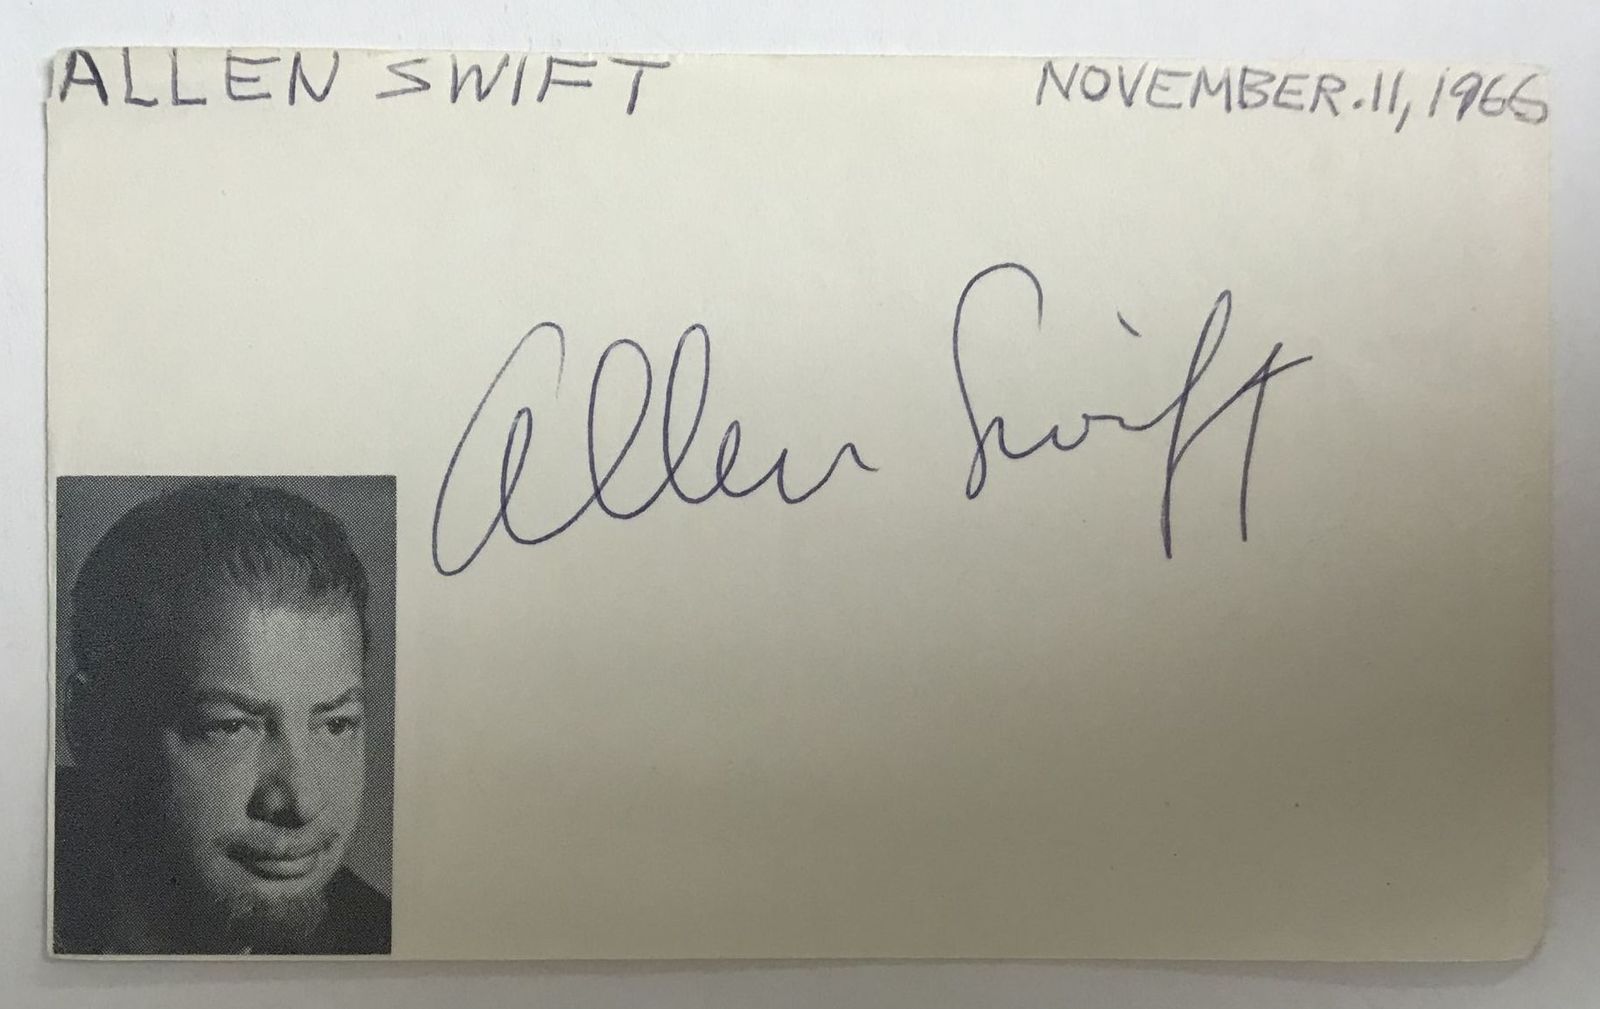 ALLEN SWIFT
NOVEMBER.11, 1966
Allen Swift